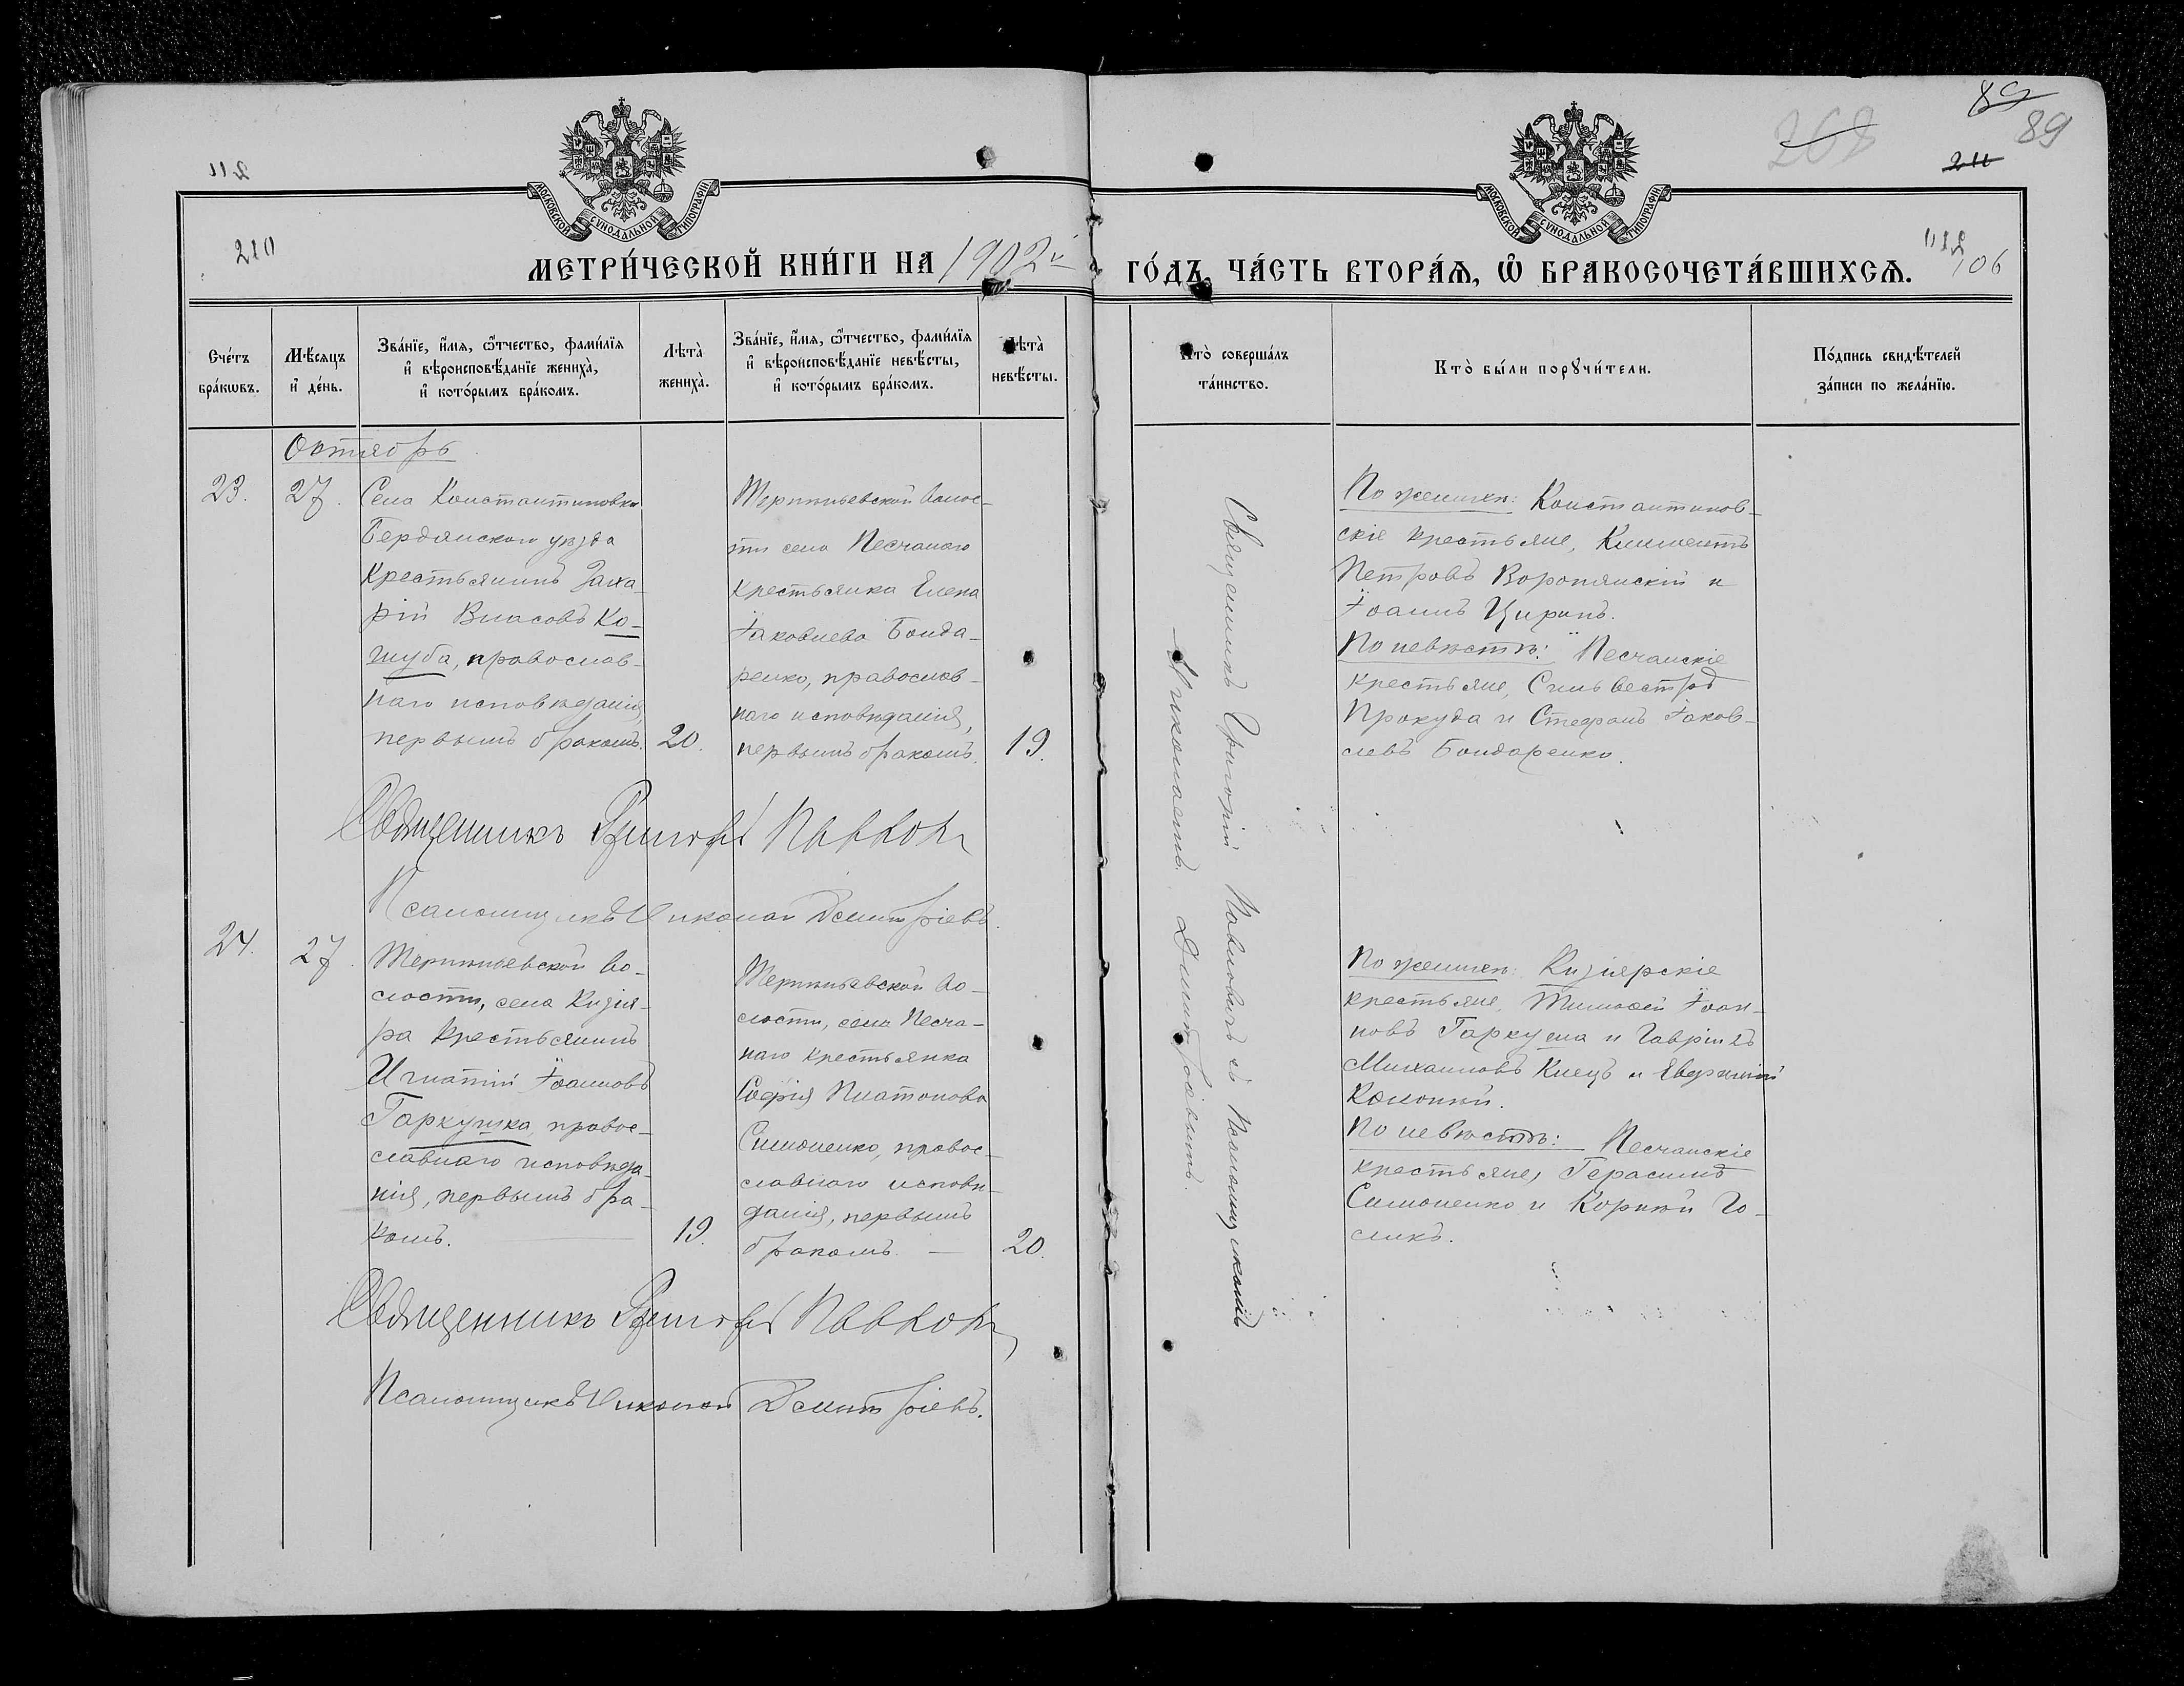 89
268
89
211
211
МОСКОВСКОЙ СѴНОДАЛЬНОЙ ТИПОГРАФІИ
МОСКОВСКОЙ СѴНОДАЛЬНОЙ ТИПОГРАФІИ
210
МЕТРИ́ЧЕСКОЙ КНИ́ГИ НА 1902й ГО́ДЪ, ЧА́СТЬ ВТОРА́Ѧ, Ѿ БРАКОСОЧЕТА́ВШИХСѦ.
106
Сче́тъ бра́кѡвъ.
Мѣ́сѧцъ и҆ де́нь.
Зва́нїе, и҆́мѧ, ѻ҆́тчество, фами́лїѧ и҆ вѣроисповѣ́данїе жениха̀, и҆ кото́рымъ бра́комъ.
Лѣта̀ жениха̀.
Зва́нїе, и҆́мѧ, ѻ҆́тчество, фами́лїѧ и҆ вѣроисповѣ́данїе невѣ́сты, и҆ кото́рымъ бра́комъ.
Лѣта̀ невѣ́сты.
Кто̀ соверша́лъ та́инство.
Кто̀ бы́ли порꙋчи́тели.
По́дпись свидѣ́телей за́писи по жела́нїю.
Октябрь
23.
27.
Села Константиновки
Бердянскаго уѣзда
крестьянинъ Заха-
рій Власовъ Ко-
шуба, православ-
наго исповѣданія,
первымъ бракомъ.
20.
Терпѣньевской волос-
ти села Песчанаго
крестьянка Елена
Іаковлева Бонда-
ренко, православ-
наго исповѣданія,
первымъ бракомъ.
19.
Священникъ Григорій Павловъ съ Псаломщикомъ
Николаемъ Димитріевымъ.
По женихѣ: Константинов-
скіе крестьяне, Климентъ
Петровъ Воропянскій и
Іоаннъ Цирань.
По невѣстѣ: Песчанскіе
крестьяне, Сильвестръ
Прокуда и Стефанъ Іаков-
левъ Бондаренко.
Священникъ Григорій Павловъ
Псаломщикъ Николай Димитріевъ.
24.
27.
Терпѣньевской во-
лости, села Кизія-
ра крестьянинъ
Игнатій Іоанновъ
Гаркушка, правос-
славнаго исповѣда-
нія, первымъ бра-
комъ.
19.
Терпѣньевской во-
лости, села Песча-
наго крестьянка
Софія Платонова
Симоненко, правос-
славнаго исповѣ-
данія, первымъ
бракомъ.
20.
По женихѣ: Кизіярскіе
крестьяне, Тимофей Іоан-
новъ Гаркуша и Гавріилъ
Михаиловъ Клецъ и Евфимій
По невѣстѣ: Песчанскіе
крестьяне, Герасимъ
Симоненко и Корнѣй Го-
ликъ.
Священникъ Григорій Павловъ
Псаломщикъ Николай Димитріевъ.